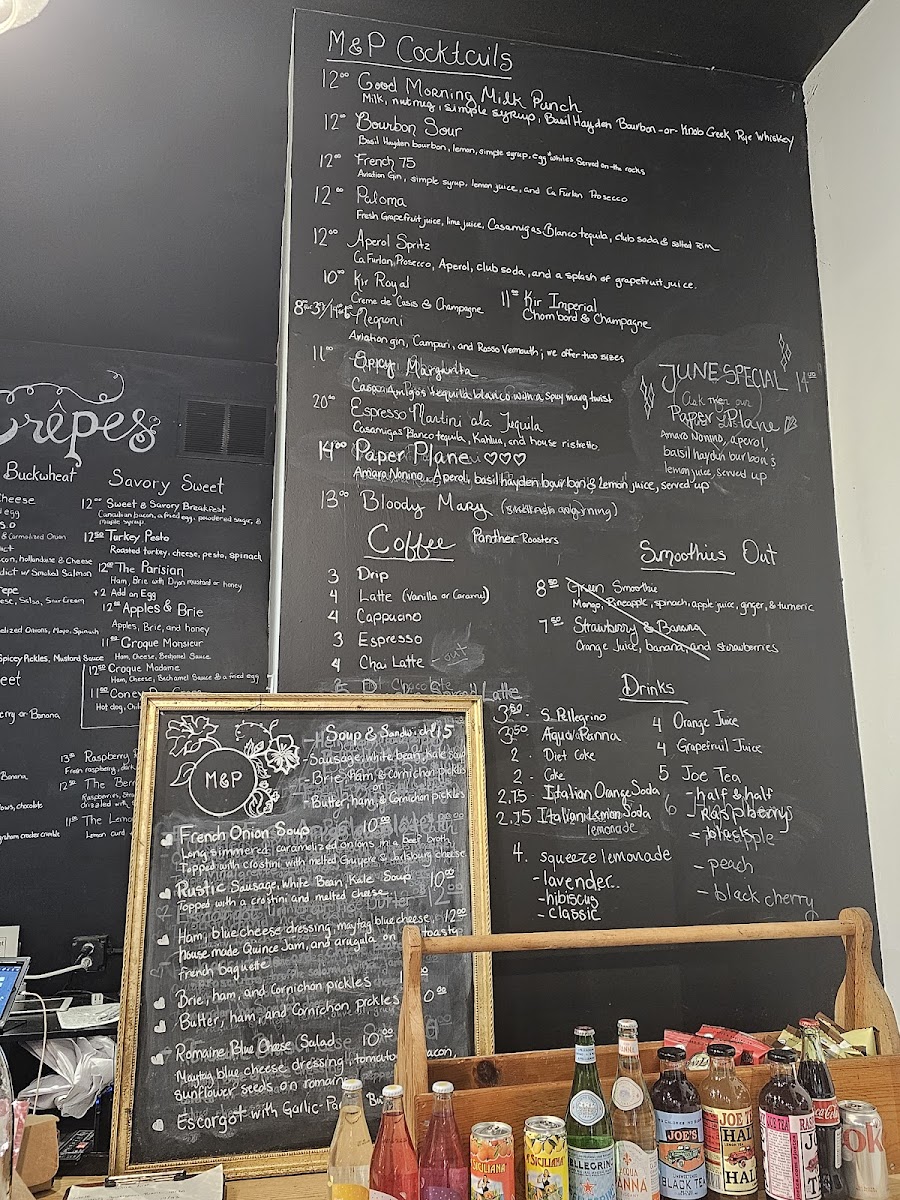 M&P Cocktails
12⁰⁰ Good Morning Milk Punch
Milk, nutmeg, simple syrup, Basil Hayden Bourbon -or- Knob Creek Rye Whiskey
12⁰⁰ Bourbon Sour
Basil Hayden bourbon, lemon, simple syrup, egg whites served on the rocks
12⁰⁰ French 75
Aviation Gin, simple syrup, lemon juice, and Ca Furlan Prosecco
12⁰⁰ Paloma
Fresh Grapefruit juice, lime juice, Casamigas Blanco tequila, club soda & salted rim
12⁰⁰ Aperol Spritz
Ca Furlan Prosecco, Aperol, club soda, and a splash of grapefruit juice.
10⁰⁰ Kir Royal
Creme de Casis & Champagne
11⁰⁰ Kir Imperial
Chombord & Champagne
Negroni
Aviation gin, Campari, and Rosso Vermouth; we offer two sizes
11⁰⁰ Spicy Margarita
Casamigos tequila blanco with a spicy marg twist
20⁰⁰ Espresso Martini ala Tequila
Casamigas Blanco tequila, Kahlua, and house ristretto.
14⁰⁰ Paper Plane ♡♡♡
Amara Nonino, Aperol, basil hayden bourbon & Lemon juice, served up
13⁰⁰ Bloody Mary
JUNE SPECIAL 14⁰⁰
Paper Plane
Amaro Nonino, aperol,
basil haydn bourbon, &
lemon juice, served up
Coffee Panther Roasters
3 Drip
4 Latte (Vanilla or Caramel)
4 Cappucino
3 Espresso
4 Chai Latte - out
Hot Chocolate
Smoothies Out
8⁵⁰ Green Smoothie
Mango, Pineapple, spinach, apple juice, ginger, & turmeric
7⁵⁰ Strawberry & Banana
Orange Juice, banana, and strawberries
Drinks
3.50 - S. Pellegrino
3.50 Aqua Panna
2 - Diet Coke
2 - Coke
2.75 - Italian Orange Soda
2.75 Italian Lemon Soda
lemonade
4. squeeze lemonade
- lavender
- hibiscus
- classic
4 Orange Juice
4 Grapefruit Juice
5 Joe Tea
- half & half
6 - Raspberry
- black
- peach
- black cherry
Crêpes
Buckwheat
Cheese
egg
& Caramelized Onion
Bacon, hollandaise & Cheese
dict w/ Smoked Salmon
Cheese, Salsa, Sour Cream
Caramelized Onions, Mayo, Spinach
Spicy Pickles, Mustard Sauce
eet
berry or Banana
Banana
graham cracker crumble
Savory Sweet
12⁰⁰ Sweet & Savory Breakfast
Canadian bacon, a fried egg, powdered sugar, &
maple syrup.
12⁵⁰ Turkey Pesto
Roasted turkey, cheese, pesto, spinach
12⁰⁰ The Parisian
Ham, Brie with Dijon mustard or honey
+2 Add an Egg
12⁰⁰ Apples & Brie
Apples, Brie, and honey
11⁵⁰ Croque Monsieur
Ham, Cheese, Bechamel Sauce
12⁵⁰ Croque Madame
Ham, Cheese, Bechamel Sauce & a fried egg
11⁵⁰ Coney Dog Crepe
Hot dog,
Raspberry
Fresh raspberry, dark
The Berr
The Lemo
Lemon curd
M&P
Soup & Sandwich 15
- Sausage, white bean, kale soup
- Brie, Ham, & Cornichon pickles
or
- Butter, ham, & Cornichon pickles
French Onion Soup 10.00
Long simmered caramelized onions in a beef broth
Topped with crostini with melted Gruyere & Jarlsburg cheese
Rustic Sausage, White Bean, Kale Soup 10.00
Topped with a crostini and melted cheese
Ham, blue cheese dressing, maytag blue cheese, 12.00
house made Quince Jam, and arugula on toasty
french baguette
Brie, ham, and Cornichon pickles
Butter, ham, and Cornichon pickles
Romaine Blue Cheese Salad 10.00
Maytag blue cheese dressing, tomato, bacon,
sunflower seeds on romaine
Escargot with Garlic
SICILIANA
SICILIANA
PELLEGRINO
ACQUA
PANNA
JOE'S
BLACK TEA
JOE T
HAL
Coca-Cola